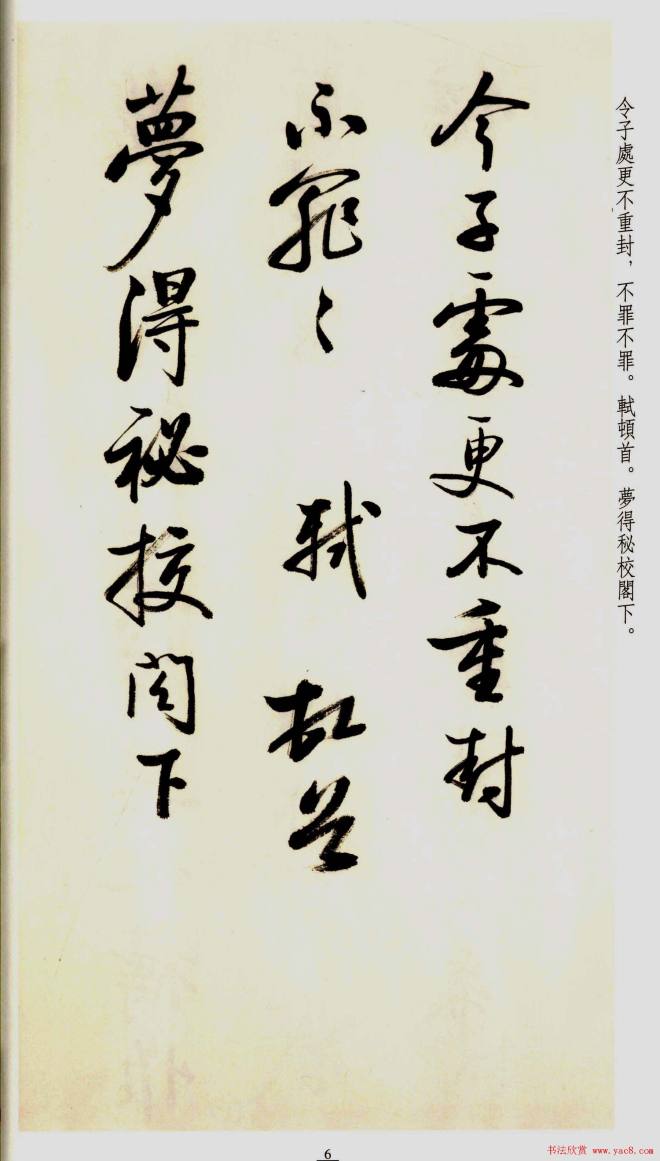 令子處更不重封，不罪不罪。軾頓首。夢得秘校閣下。
令子處更不重封
不罪〻 軾 頓首
夢得祕校閤下
6
书法欣赏 www.yac8.com